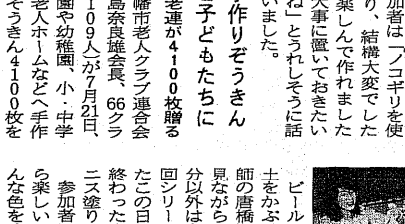 加者は「ノコギリを使
り、結構大変でした
楽しんで作れました
大事に置いておきたい
ね」とうれしそうに話
いました。
作りぞうきん
子どもたちに
老連が4100枚贈る
幡市老人クラブ連合会
島奈良雄会長、66クラ
109人）が7月21日、
園や幼稚園、小・中学
老人ホームなどへ手作
ぞうきん4100枚を
ビール
土をかぶ
師の唐橋
見ながら
分以外は
回シリー
たこの日
終わった
ニス塗り
参加者
ら楽しい
んな色を